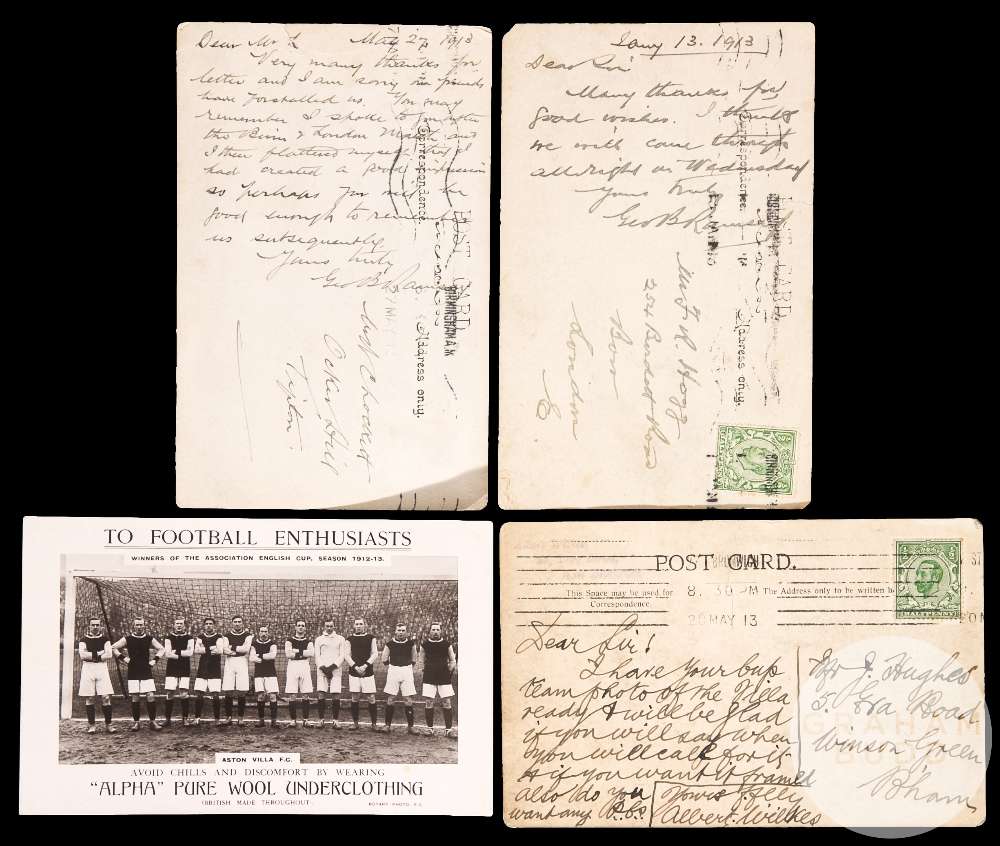 Dear Mr L May 27 1913
Very many thanks for
letter and I am sorry our friends
have forstalled us. You may
remember I spoke to you after
the Birm & London Match and
I then flattered myself that I
had created a good impression
so perhaps you will be
good enough to remember
us subsequently.
Yours truly
Geo B Ramsay
POST CARD
Correspondence.
Address only.
BIRMINGHAM
Ocker Hill
Tipton
Jany 13. 1913
Dear Sir
Many thanks for
good wishes. I think
we will come through
allright on Wednesday
Yours truly
Geo B Ramsay
POST CARD
Correspondence.
Address only.
Mr F. R. Hogg
254 Burdett Road
Bow
London
E.
TO FOOTBALL ENTHUSIASTS
WINNERS OF THE ASSOCIATION ENGLISH CUP, SEASON 1912-13.
ASTON VILLA F.C.
AVOID CHILLS AND DISCOMFORT BY WEARING
"ALPHA" PURE WOOL UNDERCLOTHING
(BRITISH MADE THROUGHOUT).
ROTARY PHOTO E.C.
POST CARD.
This Space may be used for
Correspondence
The Address only to be written
8. 30 PM
20 MAY 13
HALFPENNY
Dear Sir!
I have your cup
team photo of the Villa
ready & will be glad
if you will say when
you will call for it
& if you want it framed
also do you
want any P.Cs.
Yours ffly
Albert Wilkes
Mr J. Hughes
5. Eva Road
Winson Green
B'ham
GRAHAM
BUDD